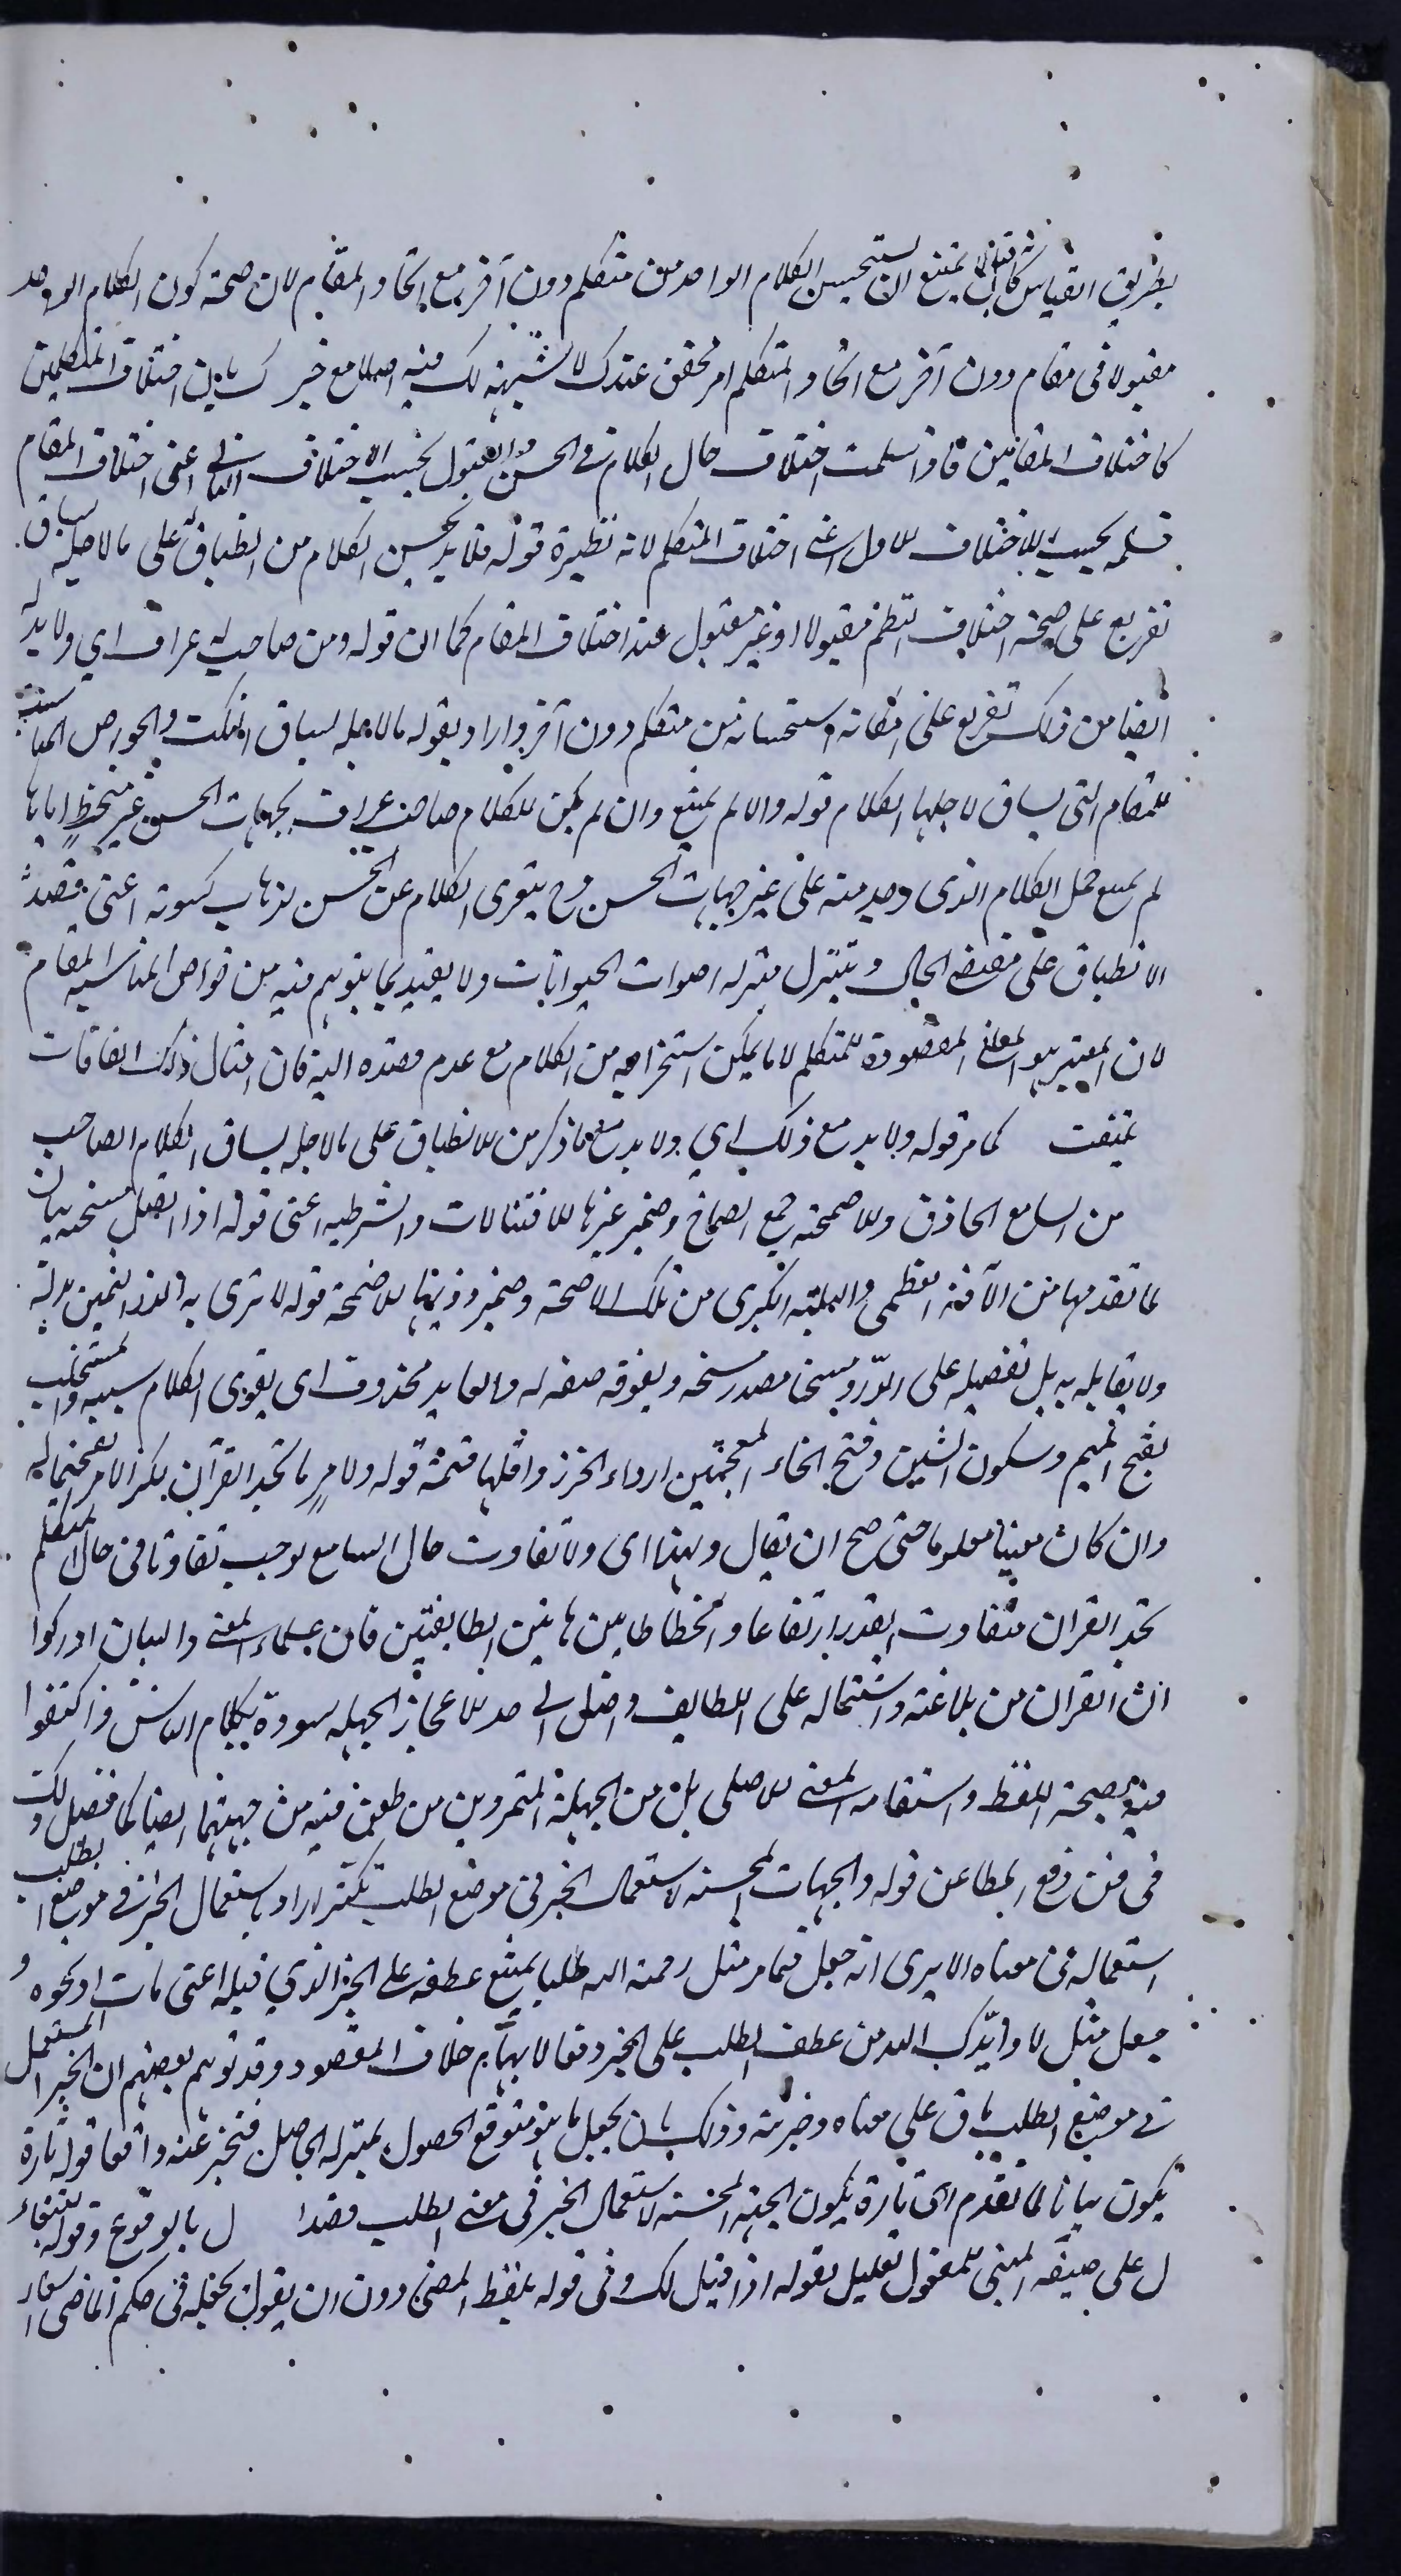 بطريق القياس كأنه قال لا يمتنع ان يستحسن الكلام الواحد من متكلم دون آخر مع اتحاد المقام لان صحة كون الكلام الواحد
مقبولا فى مقام دون آخر مع اتحاد المتكلم امر محقق عندك لا شبهة لك فيه اصلا مع خبرك بان اختلاف المتكلمين
كاختلاف المقامين فاذا سلمت اختلاف حال الكلام فى الحسن والقبول بحسب الاختلاف الثانى اعنى اختلاف المقام
فسلمه بحسب الاختلاف الاول اعنى اختلاف المتكلم لانه نظيره قوله فلا بد لحسن الكلام من انطباق على ما لاجله يساق
تفريع على صحة اختلاف النظم مقبولا او غير مقبول عند اختلاف المقام كما ان قوله ومن صاحب له عراف اى ولا بد له
ايضا من ذلك تفريع على امكانه واستحسانه من متكلم دون آخر واراد بقوله ما لاجله يساق النكت والخواص المناسبة
للمقام التى يساق لاجلها الكلام قوله والا لم يمتنع وان لم يكن للكلام صاحب عراف بجهات الحسن غير متخط اياها
لم يمتنع حمل الكلام الذى وجد منه على غير جهات الحسن وح يتعرى الكلام عن الحسن لذهاب كسوته اعنى قصد
الانطباق على مقتضى الحال ويتنزل منزلة اصوات الحيوانات ولا يعتد بما يتوهم فيه من خواص المناسبة للمقام
لان المعتبر هو المعانى المقصودة للمتكلم لا ما يمكن استخراجه من الكلام مع عدم قصده اليه فان امثال ذلك اتفاقات
كما مر قوله ولا بد مع ذلك اى ولا بد مع ما ذكر من الانطباق على ما لاجله يساق الكلام الصاحب
من السامع الحاذق والاصمخة جمع الصماخ وضمير غيرها للافتتالات والشرطية اعنى قوله اذا اتصل بمسخه بيان
لما تقدمها من الآفة العظمى والبلية الكبرى من تلك الاصمخة وضمير وزنها للاصمخة قوله لا ترى به الدر الثمين بدله
ولا يقابله به بل تفضيله على الدر ومسخا مصدر مسخه ويفوقه صفة له والعايد محذوف اى يقوى الكلام بسببه والمشخلب
بفتح الميم وسكون الشين وفتح الخاء المعجمتين ارداء الخرز واقلها قيمة قوله ولامر ما تجد القرآن نكر الامر تفخيما له
وان كان معينا معلوما حتى صح ان يقال ولهذا اى ولا تفاوت حال السامع يوجب تفاوتا فى حال المتكلم
تجد القران متفاوت القدر ارتفاعا وانحطاطا بين هاتين الطايفتين فان علماء المعنى والبيان ادركوا
ان القران من بلاغته واشتماله على اللطايف واصل الى حد الاعجاز والجهلة سووه بكلام الناس واكتفوا
فيه بصحة اللفظ واستقامة المعنى الاصلى بل من الجهلة المتمردين من طعن فيه من جهتهما ايضا كما فصل ذلك
فى فن دفع المطاعن قوله والجهات المحسنة لاستعمال الخبر فى موضع الطلب تكثر اراد باستعمال الخبر فى موضع الطلب
استعماله فى معناه الا يرى انه جعل فيما مر مثل رحمة الله طلبا يمتنع عطفه على الخبر الذى قبله اعنى مات او نحوه و
جعل مثل لا وايدك الله من عطف الطلب على الخبر دفعا لايهام خلاف المقصود وقد توهم بعضهم ان الخبر المستعمل
فى موضع الطلب باق على معناه وخبريته وذلك بان يجعل ما هو متوقع الحصول بمنزلة الحاصل فيخبر عنه واقعا قوله تارة
يكون بيانا لما تقدم اى تارة يكون الجهة المحسنة لاستعمال الخبر فى معنى الطلب قصدا ل بالوقوع وقوله
ل على صيغة المبنى للمفعول تعليل لقوله اذا قيل لك وفى قوله بلفظ المضى دون ان يقول بجعله فى حكم الماضى